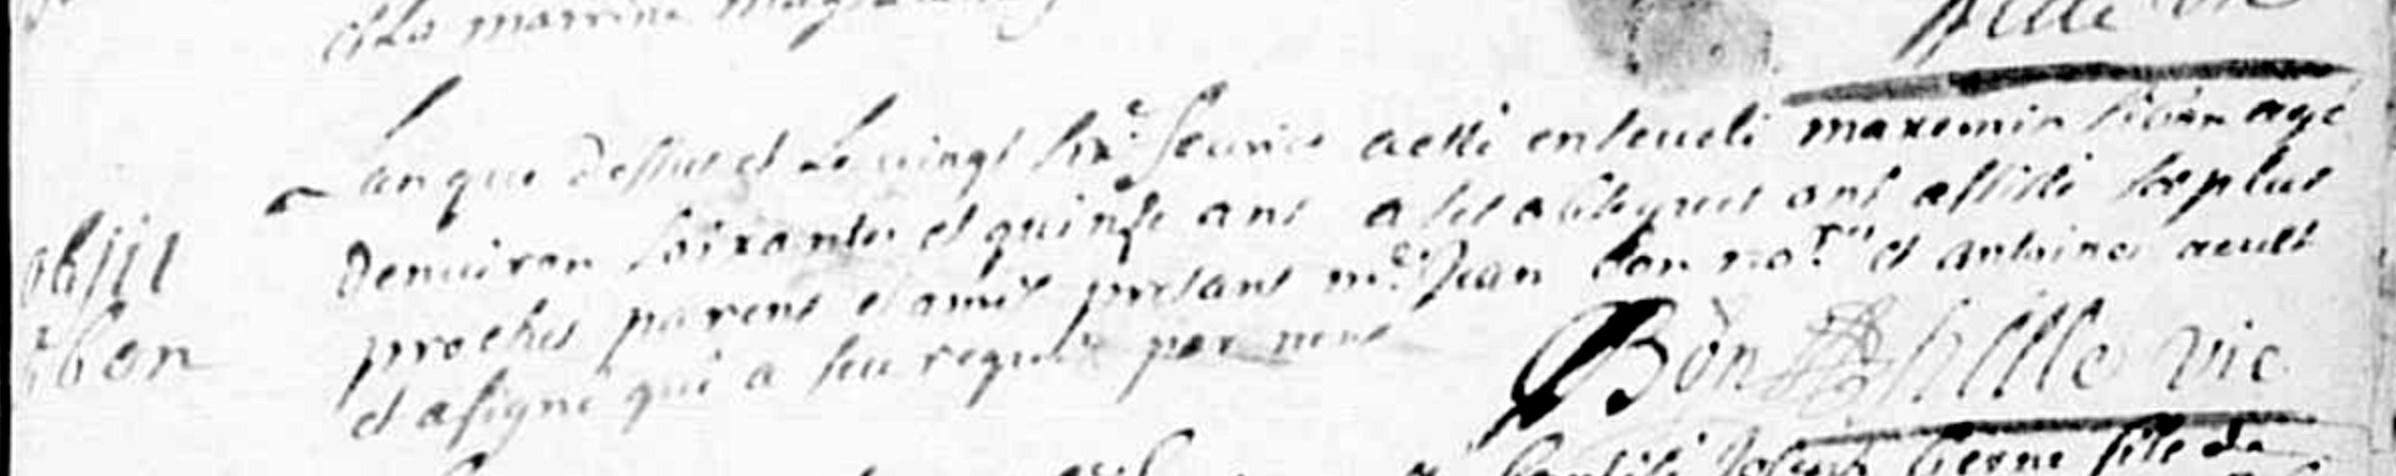 et la marrine
Lan que dessus et le vingt sixe feurier a esté enseueli maxemin age
denuiron soixante et quinse ans a ses obseques ont assisté les plus
proches parens et amis presans me Jean bon nore et antoine
et a signé qui a sceu requis par nous
obiit
bon
Bon vic